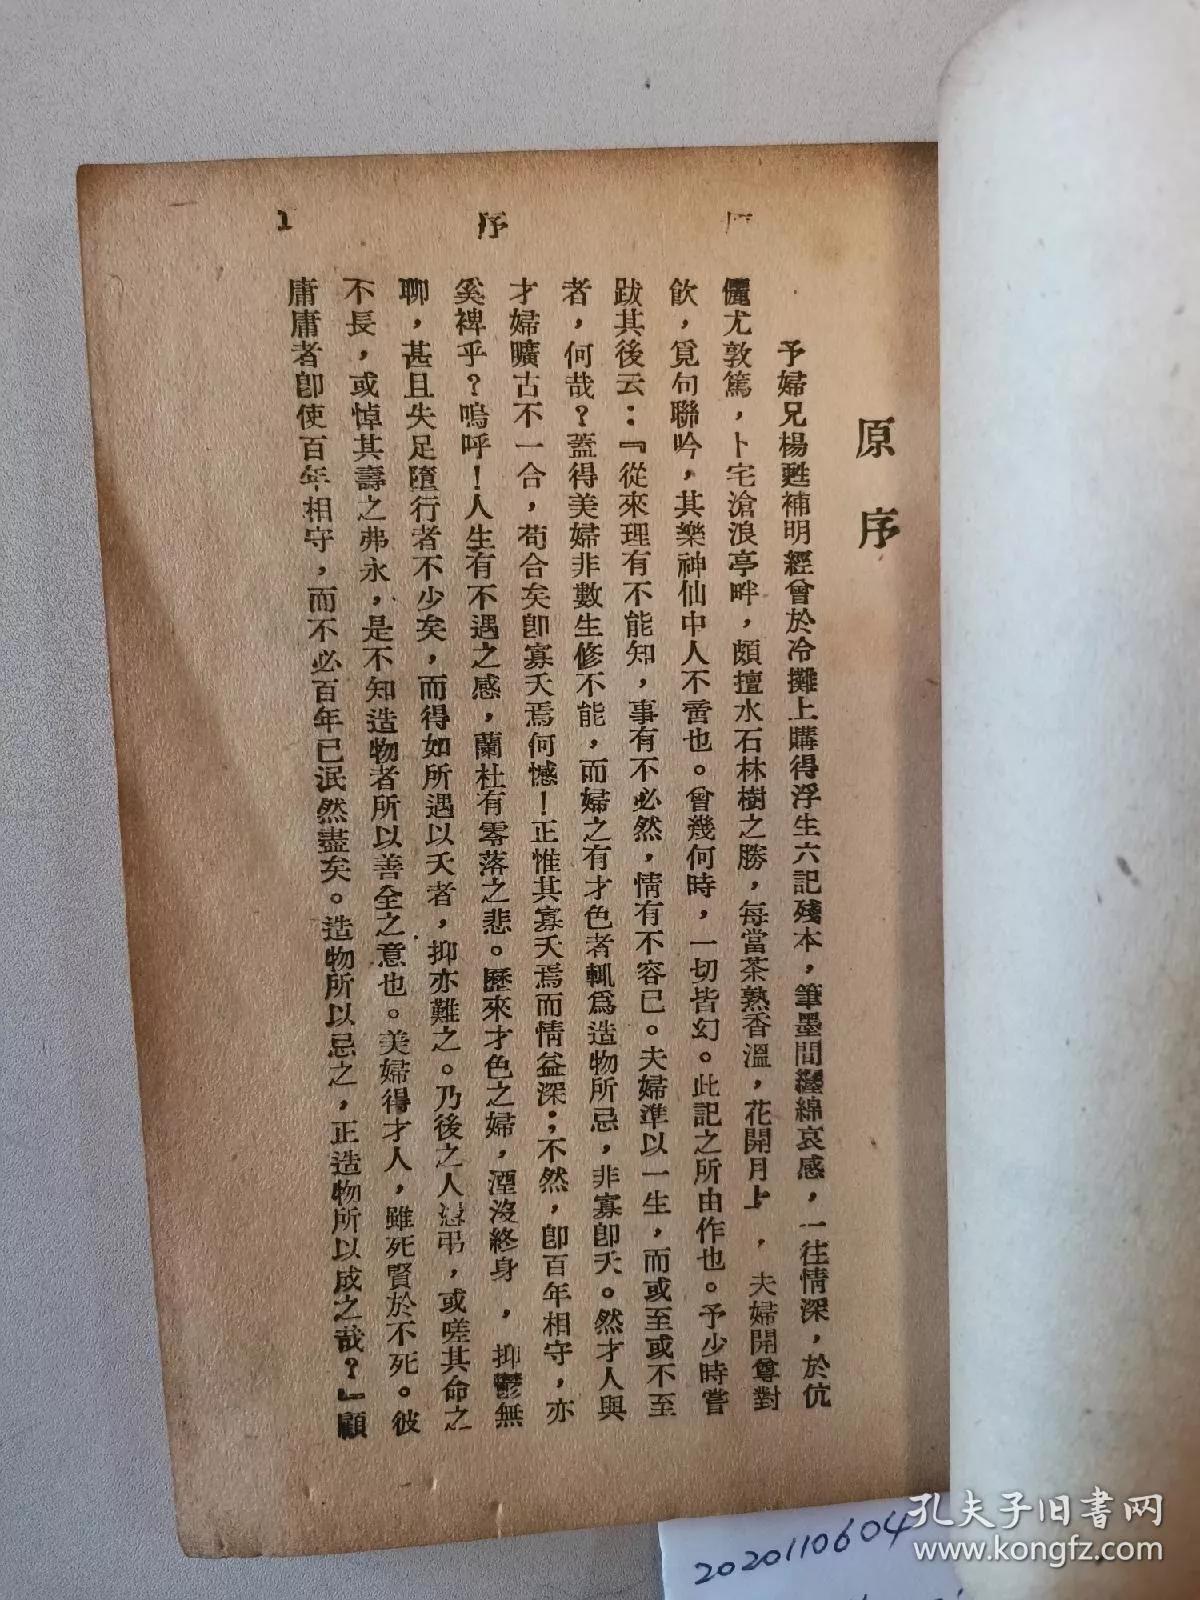 序
1
原序
予婦兄楊甦補明經曾於冷攤上購得浮生六記殘本，筆墨間纏綿哀感，一往情深，於伉
儷尤敦篤，卜宅滄浪亭畔，頗擅水石林樹之勝，每當茶熟香溫，花開月上，夫婦開尊對
飲，覓句聯吟，其樂神仙中人不啻也。曾幾何時，一切皆幻。此記之所由作也。予少時嘗
跋其後云：『從來理有不能知，事有不必然，情有不容已。夫婦準以一生，而或至或不至
者，何哉？蓋得美婦非數生修不能，而婦之有才色者輒爲造物所忌，非寡卽夭。然才人與
才婦曠古不一合，苟合矣卽寡夭焉何憾！正惟其寡夭焉而情益深；不然，卽百年相守，亦
奚裨乎？嗚呼！人生有不遇之感，蘭杜有零落之悲。歷來才色之婦，湮沒終身，抑鬱無
聊，甚且失足墮行者不少矣，而得如所遇以夭者，抑亦難之。乃後之人憑弔，或嗟其命之
不長，或悼其壽之弗永，是不知造物者所以善全之意也。美婦得才人，雖死賢於不死。彼
庸庸者卽使百年相守，而不必百年已泯然盡矣。造物所以忌之，正造物所以成之哉？』顧
2020110604
孔夫子旧书网
www.kongfz.com